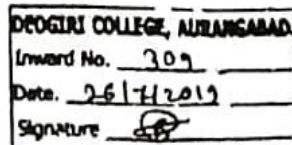 DEOGIRI COLLEGE, AURANGABAD.
Inward No. 309
Date. 26/7/2019
Signature